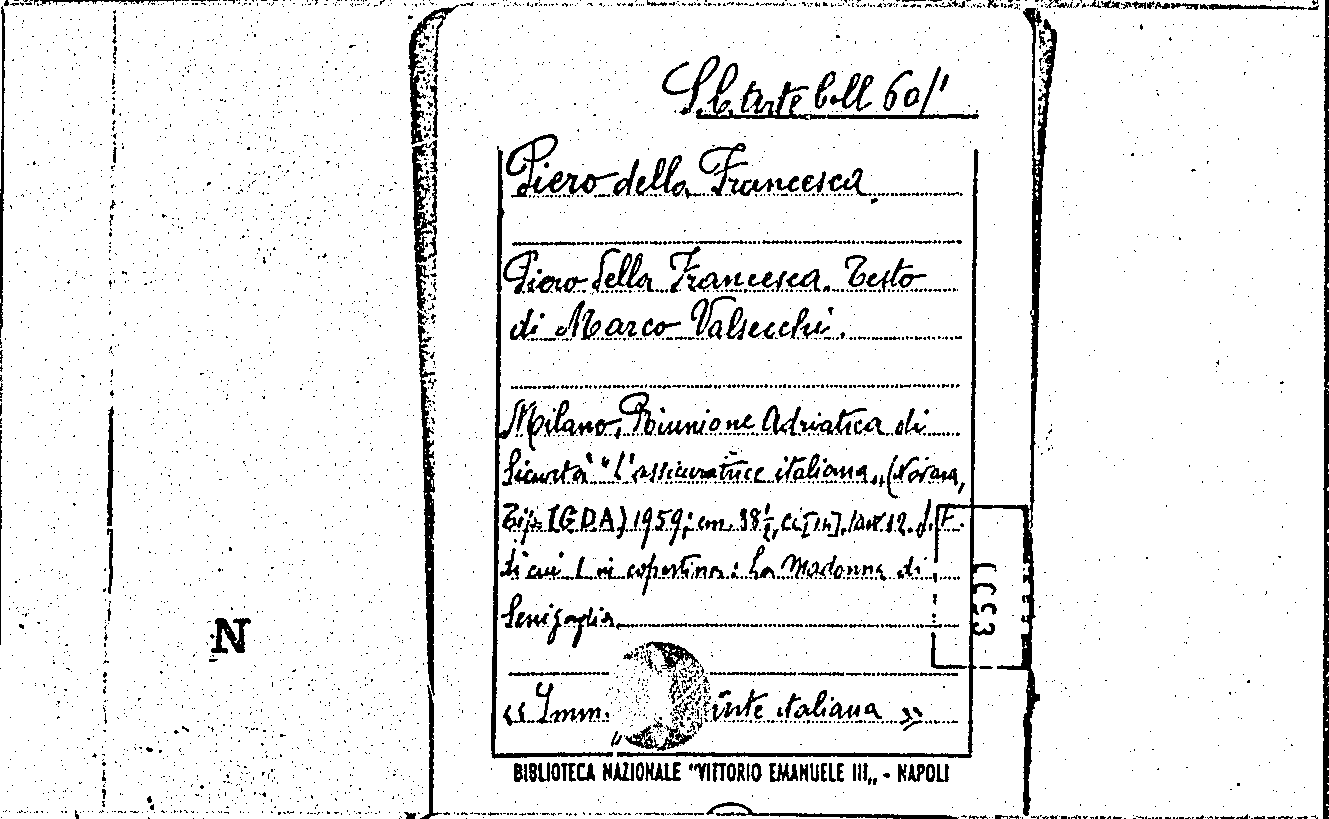 60/1
Piero della Francesca.
Piero della Francesca. Testo
di Marco Valsecchi.
Milano, Riunione Adriatica di
Sicurtà "L'assicuratrice italiana„ (Novara,
Tip. I.G.D.A.) 1959; cm. 38½, tav. 12.
di cui 1 in copertina: La Madonna di
Senigaglia.
« Imm. italiana »
BIBLIOTECA NAZIONALE "VITTORIO EMANUELE III„ - NAPOLI
N